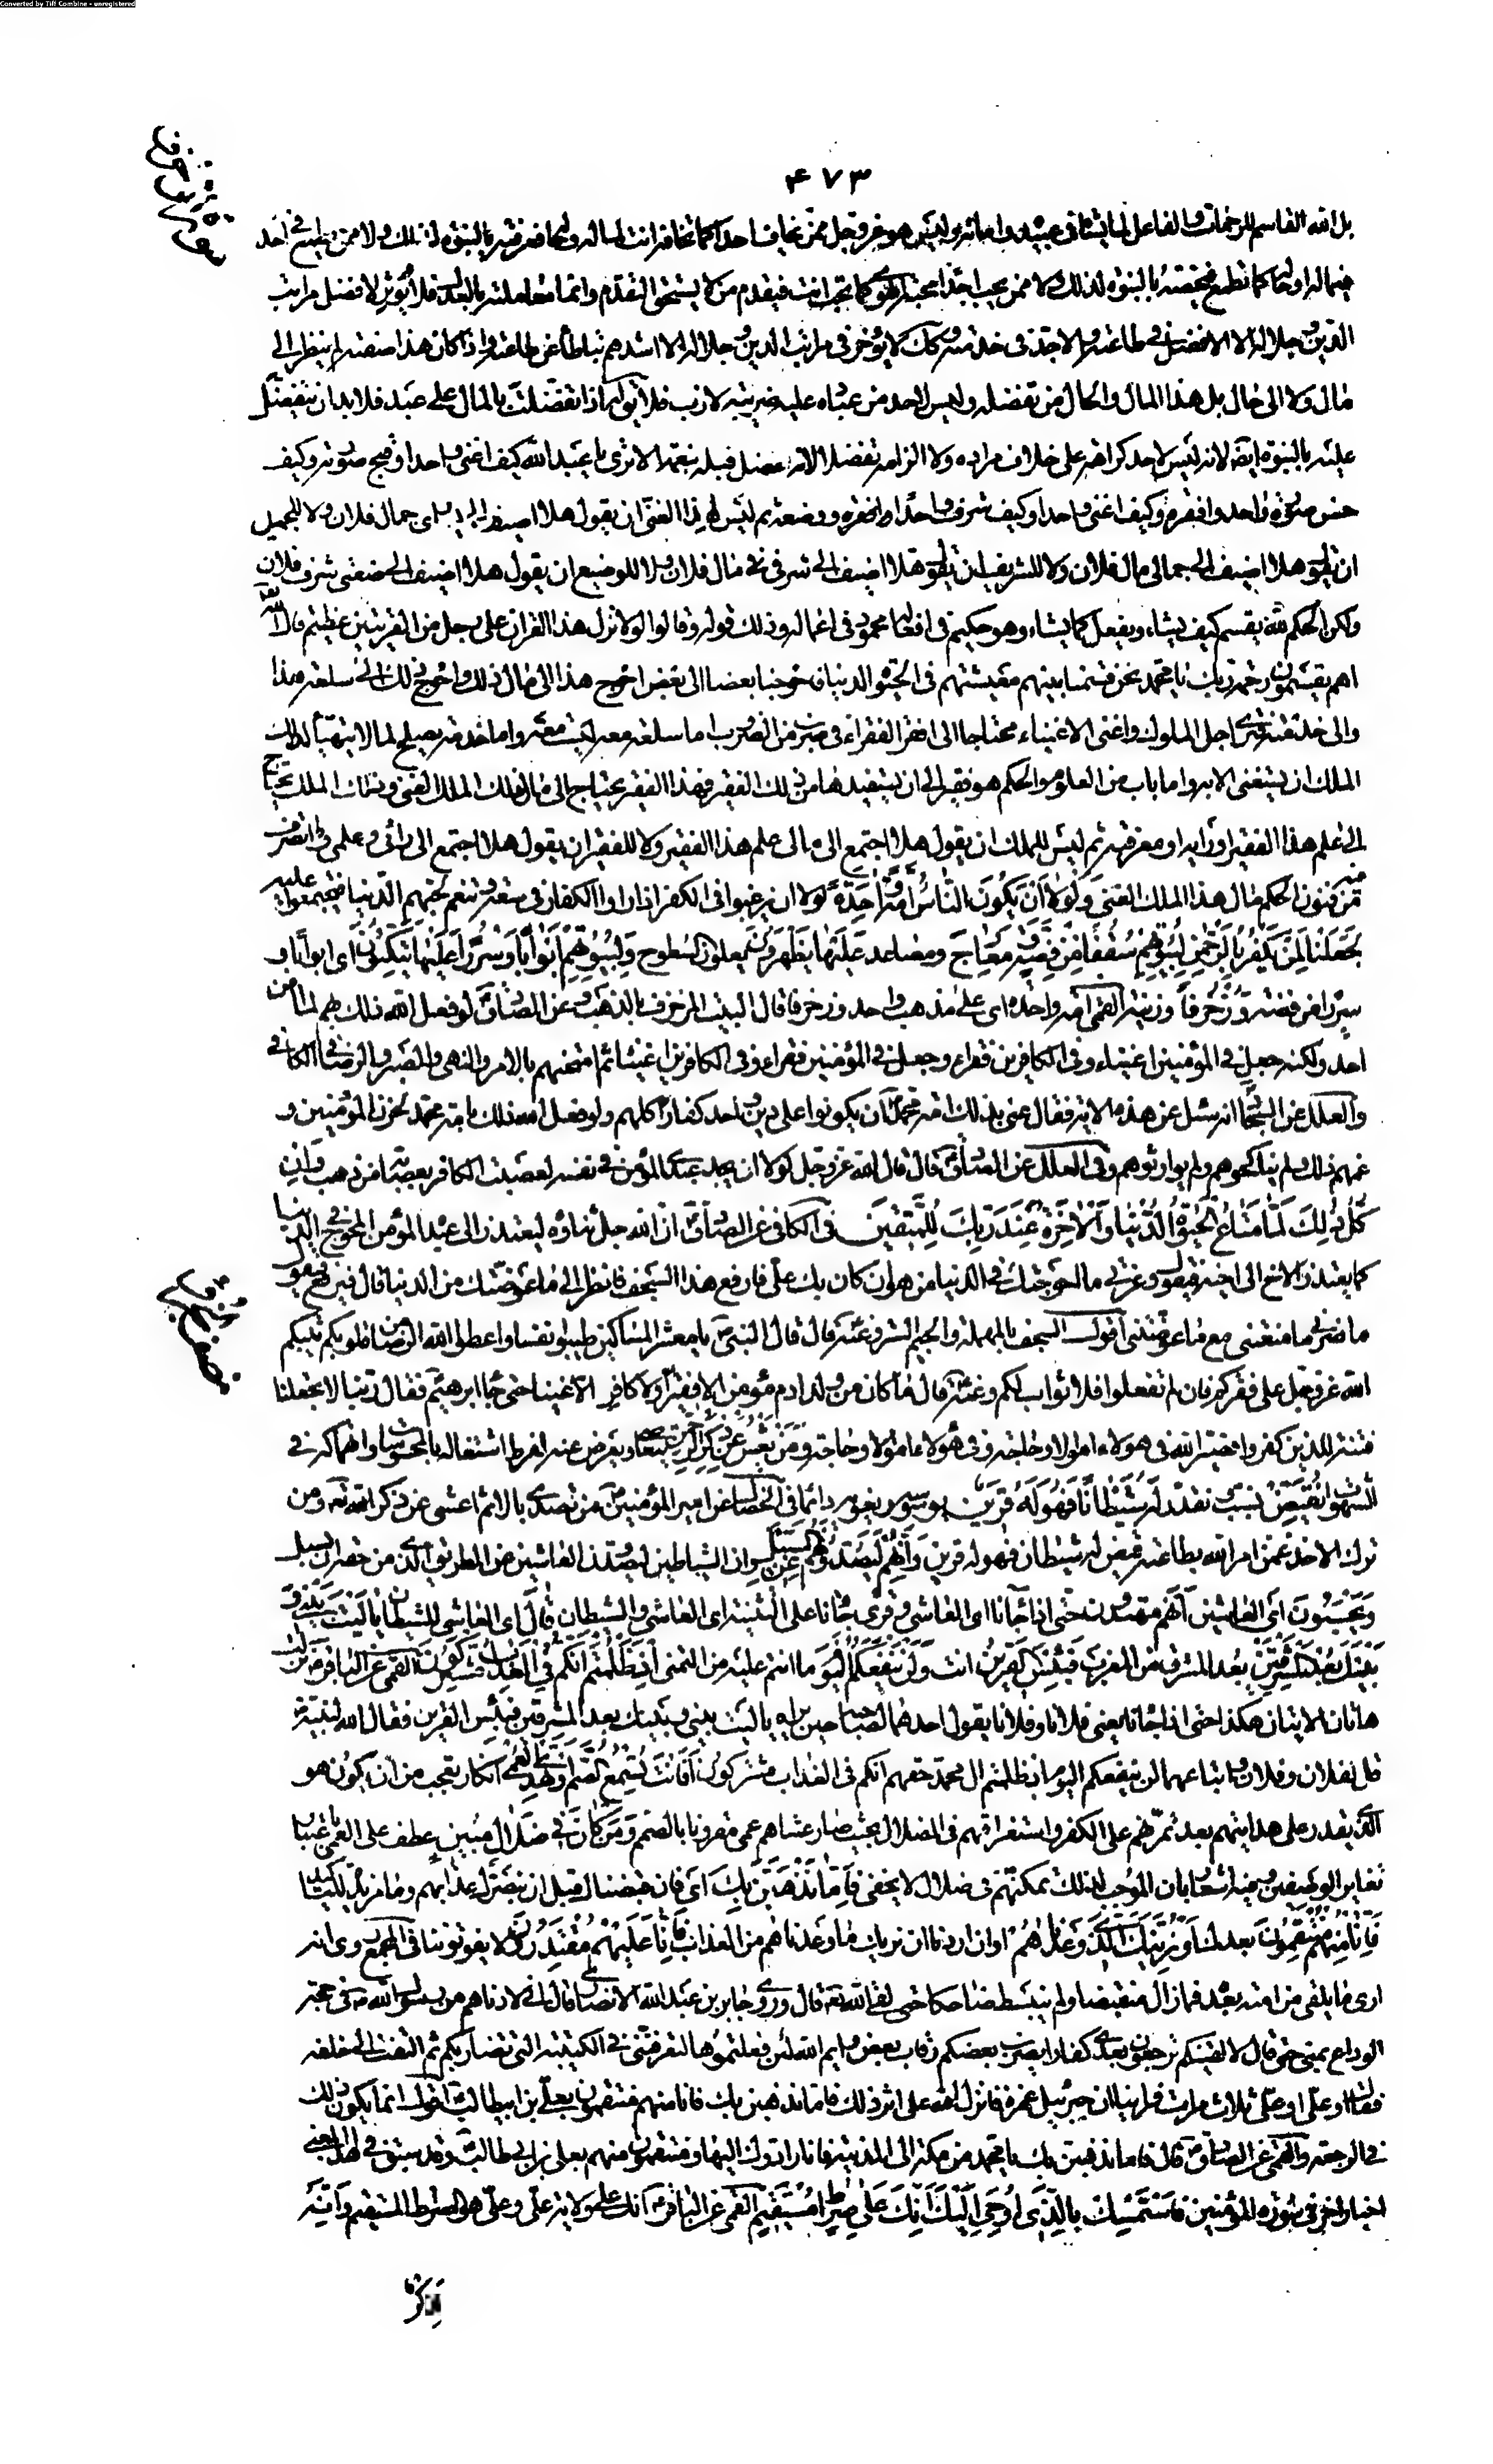 Converted by Tiff Combine - unregistered
۴۷۳
بل الله القاسم للرحمات والفاعل لما يشاء في عبيده وامائه وليس هو عز وجل ممن يخاف احدا كما تخافه انت لماله وحاله فتعرفه بالنبوة لذلك ولا ممن يطمع في احد
في ماله او حاله كما تطمع فتخصه بالنبوة لذلك ولا ممن يحب احدا محبة الهوى كما تحب انت فيقدم من لا يستحق التقديم وانما معاملته بالعدل فلا يؤثر لافضل مراتب
الدين وجلاله الا الافضل في طاعته والاجد في خدمته وكذلك لا يؤخر في مراتب الدين وجلاله الا اشدهم تباطأ عن طاعته واذا كان هذا صفته لم ينظر الى
مال ولا الى حال بل هذا المال والحال من تفضله وليس لاحد من عباده عليه ضريبة لازب فلا يقال له اذا تفضلت بالمال على عبد فلابد ان تتفضل
عليه بالنبوة ايضا لانه ليس لاحد اكراهه على خلاف مراده ولا الزامه تفضلا لانه تفضل قبله بنعمه الا ترى يا عبد الله كيف اغنى واحدا وقبح صورته وكيف
حسن صورة واحد وافقره وكيف اغنى واحدا وكيف شرف واحدا وافقره ووضعه ثم ليس لهذا الغني ان يقول هلا اضيف الى يساري جمال فلان ولا للجميل
ان يقول هلا اضيف الى جمالي مال فلان ولا للشريف ان يقول هلا اضيف الى شرفي مال فلان ولا للوضيع ان يقول هلا اضيف الى ضعتي شرف فلان
ولكن الحكم لله يقسم كيف يشاء ويفعل كما يشاء وهو حكيم في افعاله محمود في اعماله وذلك قوله وقالوا لولا نزل هذا القران على رجل من القريتين عظيم قال الله
اهم يقسمون رحمة ربك يا محمد نحن قسمنا بينهم معيشتهم في الحيوة الدنيا فاحوجنا بعضا الى بعض احوج هذا الى مال ذلك واحوج ذلك الى سلعة هذا
والى خدمته فترى اجل الملوك واغنى الاغنياء محتاجا الى افقر الفقراء في ضرب من الضروب اما سلعة معه ليست معه واما خدمة يصلح لما لا يتهيأ لذلك
الملك ان يستغني الا به واما باب من العلوم والحكم هو فقير الى ان يستفيدها من ذلك الفقير فهذا الفقير يحتاج الى مال ذلك الملك الغني وذلك الملك يحتاج
الى علم هذا الفقير او رايه او معرفته ثم ليس للملك ان يقول هلا اجتمع الى مالي علم هذا الفقير ولا للفقير ان يقول هلا اجتمع الى رائي وعلمي وما اتصرف
فيه من فنون الحكم مال هذا الملك الغني وَلَوْلَا أَنْ يَكُونَ النَّاسُ أُمَّةً وَاحِدَةً لولا ان يرغبوا في الكفر اذا راوا الكفار في سعة وتنعم لحبهم الدنيا فيجتمعوا عليه
لَجَعَلْنَا لِمَنْ يَكْفُرُ بِالرَّحْمٰنِ لِبُيُوتِهِمْ سُقُفًا مِنْ فِضَّةٍ وَمَعَارِجَ ومصاعد عَلَيْهَا يَظْهَرُونَ يعلون السطوح وَلِبُيُوتِهِمْ أَبْوَابًا وَسُرُرًا عَلَيْهَا يَتَّكِئُونَ اى ابوابا و
سررا من فضة وَزُخْرُفًا وزينة القمي امة واحدة اى على مذهب واحد وزخرفا قال البيت المزخرف بالذهب وعن الصادق لو فعل الله ذلك لما امن
احد ولكنه جعل في المؤمنين اغنياء وفي الكافرين فقراء وجعل في المؤمنين فقراء وفي الكافرين اغنياء ثم امتحنهم بالامر والنهى والصبر والرضا في الكافي
والعلل عن السجاد انه سئل عن هذه الاية فقال عنى بذلك امة محمد ان يكونوا على دين واحد كفارا كلهم ولو فعل الله ذلك بامة محمد لحزن المؤمنين و
غمهم ذلك ولم يناكحوهم ولم يوارثوهم وفي العلل عن الصادق قال قال الله عز وجل لولا ان يجد عبدي المؤمن في نفسه لعصبت الكافر بعصابة من ذهب وَإِنْ
كُلُّ ذٰلِكَ لَمَّا مَتَاعُ الْحَيٰوةِ الدُّنْيَا وَالْآخِرَةُ عِنْدَ رَبِّكَ لِلْمُتَّقِينَ في الكافي عن الصادق ان الله جل ثناؤه ليعتذر الى عبده المؤمن المحوج في الدنيا
كما يعتذر الاخ الى اخيه فيقول وعزتي ما احوجتك في الدنيا من هوان كان بك علي فارفع هذا السجف فانظر الى ما عوضتك من الدنيا قال فيرفع فيقول
ما ضرني ما منعتني مع ما عوضتني اقول السجف بالمهملة والجيم الستر وعنه قال قال النبي يا معشر المساكين طيبوا نفسا واعطوا الله الرضا من قلوبكم يثبكم
الله عز وجل على فقركم فان لم تفعلوا فلا ثواب لكم وعنه قال ما كان من ولد ادم مؤمن الا فقيرا ولا كافر الا غنيا حتى جاء ابرهيم فقال ربنا لا تجعلنا
فتنة للذين كفروا فصير الله في هؤلاء اموالا وحاجة وفي هؤلاء اموالا وحاجة وَمَنْ يَعْشُ عَنْ ذِكْرِ الرَّحْمٰنِ يتعام ويعرض عنه لفرط اشتغاله بالمحسوسات وانهماكه في
الشهوات نُقَيِّضْ نسبب ونقدر لَهُ شَيْطَانًا فَهُوَ لَهُ قَرِينٌ يوسوسه ويغويه دائما في الخصال عن امير المؤمنين من تصدى بالاثم اعشى عن ذكر الله تعه ومن
ترك الاخذ عمن امر الله بطاعته قيض له شيطان فهو له قرين وَإِنَّهُمْ لَيَصُدُّونَهُمْ عَنِ السَّبِيلِ وان الشياطين ليصدن العاشين من الطريق الذي من حقه ان يسبل
وَيَحْسَبُونَ اى العاشين أَنَّهُمْ مُهْتَدُونَ حَتّٰى إِذَا جَاءَنَا اى العاشى وقرئ جاءانا على التثنية اى العاشى والشيطان قَالَ اى العاشى للشيطان يَا لَيْتَ بَيْنِي وَ
بَيْنَكَ بُعْدَ الْمَشْرِقَيْنِ بعد المشرق من المغرب فَبِئْسَ الْقَرِينُ انت وَلَنْ يَنْفَعَكُمُ الْيَوْمَ ما انتم عليه من التمنى إِذْ ظَلَمْتُمْ أَنَّكُمْ فِي الْعَذَابِ مُشْتَرِكُونَ القمي عن الباقر نزلت
هاتان الايتان هكذا حتى اذا جاءانا يعني فلانا وفلانا يقول احدهما لصاحبه حين يراه يا ليت بيني وبينك بعد المشرقين فبئس القرين فقال الله لنبيه
قل لفلان وفلان واتباعهما لن ينفعكم اليوم اذ ظلمتم ال محمد حقهم انكم في العذاب مشتركون أَفَأَنْتَ تُسْمِعُ الصُّمَّ أَوْ تَهْدِي الْعُمْيَ انكار تعجب من ان يكون هو
الذي يقدر على هدايتهم بعد تمرنهم على الكفر واستغراقهم في الضلال بحيث صار عشاهم عمى مقرونا بالصمم وَمَنْ كَانَ فِي ضَلَالٍ مُبِينٍ عطف على العمى باعتبار
تغاير الوصفين وفيه اشعار بان الموجب لذلك تمكنهم في ضلال لا يخفى فَإِمَّا نَذْهَبَنَّ بِكَ اى فان قبضناك قبل ان نبصرك عذابهم وما مزيدة للتاكيد
فَإِنَّا مِنْهُمْ مُنْتَقِمُونَ بعدك أَوْ نُرِيَنَّكَ الَّذِي وَعَدْنَاهُمْ او ان اردنا ان نريك ما وعدناهم من العذاب فَإِنَّا عَلَيْهِمْ مُقْتَدِرُونَ لا يفوتوننا في المجمع روى انه
ارى ما يلقى من امته بعده فما زال منقبضا ولم ينبسط ضاحكا حتى لقى الله تعه قال وروى جابر بن عبد الله الانصاري قال اني لادناهم من رسول الله في حجة
الوداع بمنى حتى قال لا الفينكم ترجعون بعدي كفارا يضرب بعضكم رقاب بعض وايم الله لئن فعلتموها لتعرفنني في الكتيبة التي تضاربكم ثم التفت الى خلفه
فقال او علي او علي ثلاث مرات فراينا ان جبرئيل غمزه فانزل الله على اثر ذلك فاما نذهبن بك فانا منهم منتقمون بعلي بن ابيطالب اقول انما يكون ذلك
في الرجعة والقمي عن الصادق قال فاما نذهبن بك يا محمد من مكة الى المدينة فانا رادوك اليها ومنتقمون منهم بعلي بن ابي طالب وقد سبق في هذا المعنى
اخبار اخر في سورة المؤمنين فَاسْتَمْسِكْ بِالَّذِي أُوحِيَ إِلَيْكَ إِنَّكَ عَلَى صِرَاطٍ مُسْتَقِيمٍ القمي عن الباقر انك على ولاية علي وعلي هو الصراط المستقيم وَإِنَّهُ
لَذِكْرٌ